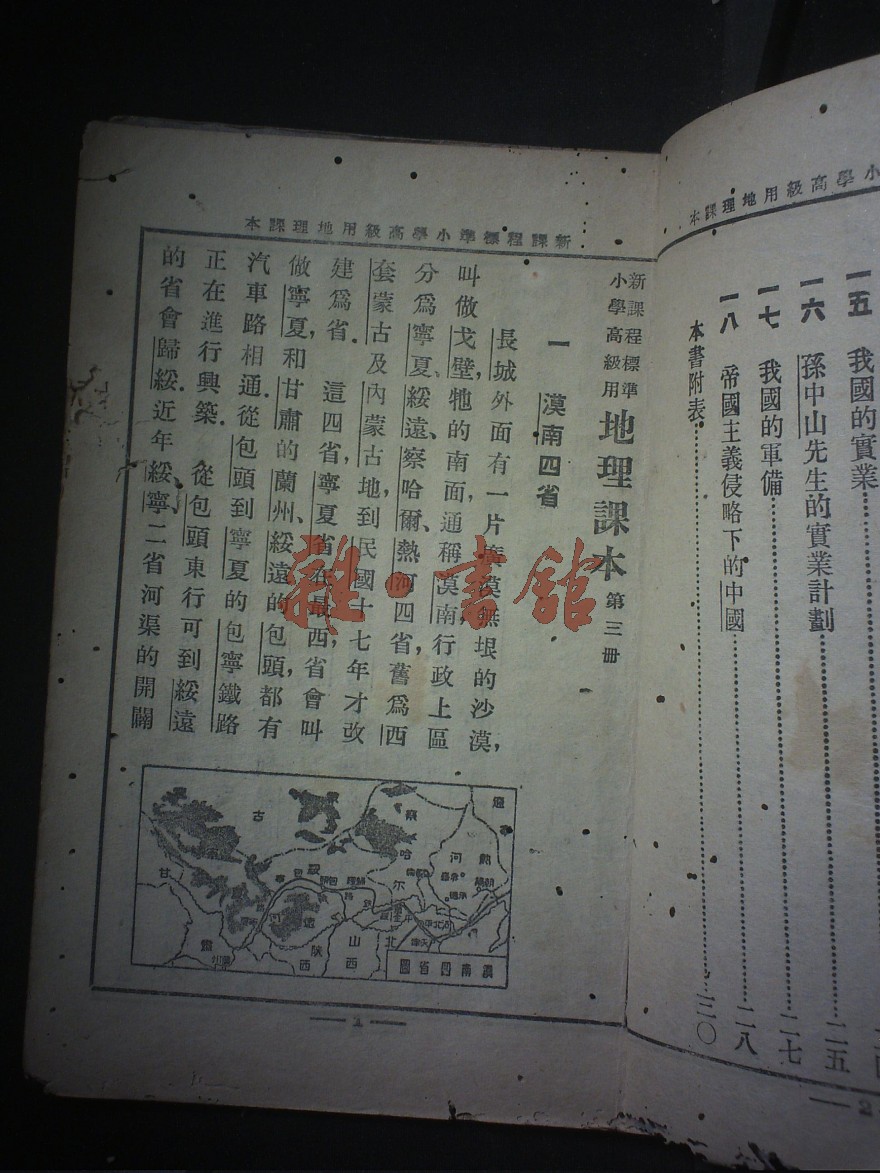 小學高級用地理課本
一五 我國的實業
一六 孫中山先生的實業計劃 二五
一七 我國的軍備 二七
一八 帝國主義侵略下的中國 二八
本書附表 三〇
2
新課程標準小學高級用地理課本
新課程標準
小學高級用
地理課本 第三冊
一 漠南四省
長城外面有一片廣漠無垠的沙漠,
叫做戈壁,牠的南面,通稱漠南行政上區
分爲寧夏、綏遠、察哈爾、熱河四省,舊爲西
套蒙古及內蒙古地,到民國十七年才改
建爲省. 這四省,寧夏省在最西,省會叫
做寧夏,和甘肅的蘭州、綏遠的包頭,都有
汽車路相通.從包頭到寧夏的包寧鐵路
正在進行興築. 從包頭東行可到綏遠
的省會歸綏.近年綏、寧二省河渠的開闢
古
察
哈
爾
熱
河
綏
遠
甘
肅
陝西
山西
河北
漠南四省圖
1
雜·書館